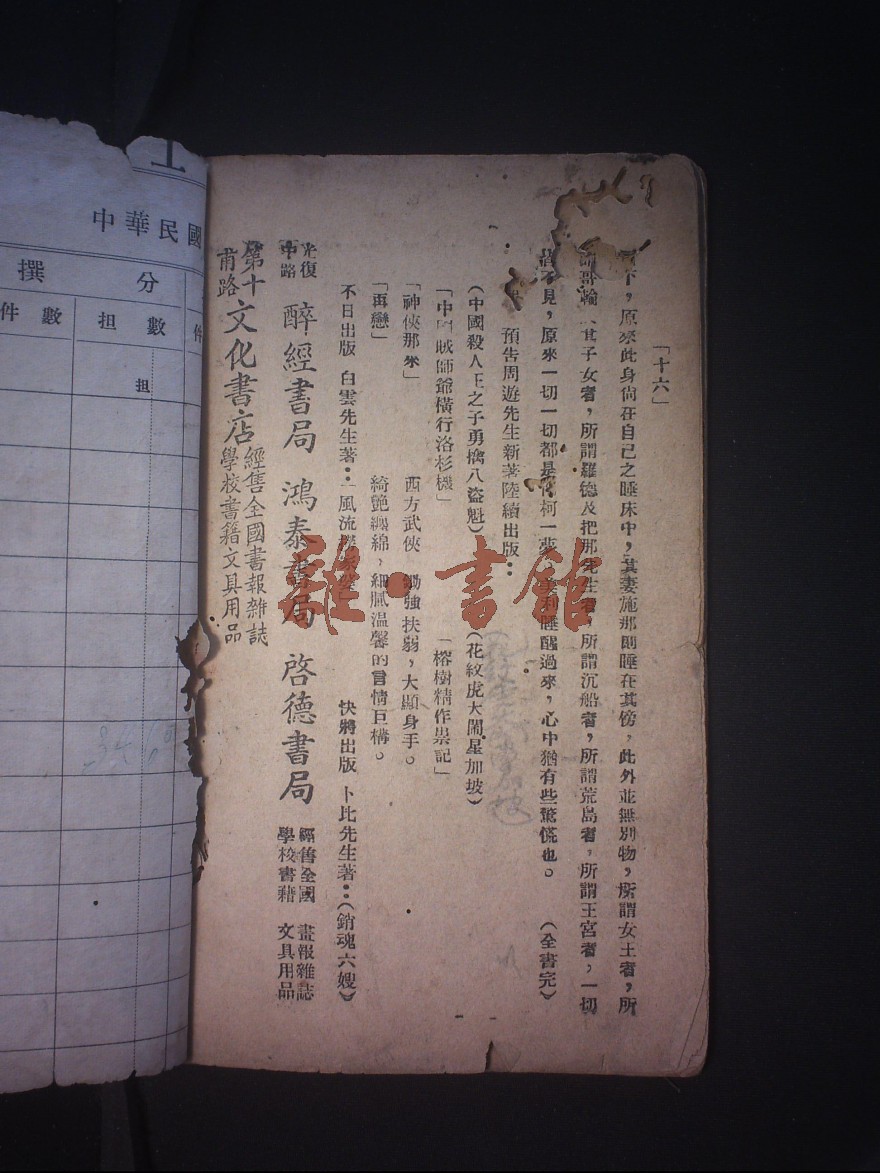 「十六」
下,原來此身尙在自己之睡床中,其妻施那則睡在其傍,此外並無別物,所謂女王者,所
其子女者,所謂羅德及把那先生者,所謂沉船者,所謂荒島者,所謂王宮者,一切
不見,原來一切一切都是柯一夢,睡醒過來,心中猶有些驚慌也。 (全書完)
預吿周遊先生新著陸續出版:
(中國殺人王之子勇擒八盜魁) (花紋虎大鬧星加坡)
「中國賊師爺橫行洛杉機」 「榕樹精作祟記」
「神俠那米」 西方武俠 鋤強扶弱,大顯身手。
「再戀」 綺艶纏綿,細膩溫馨的言情巨構。
不日出版 白雲先生著:「風流 快將出版 卜比先生著:(銷魂六嫂)
光復中路 醉經書局 鴻泰書局 啓德書局 經售全國 畫報雜誌 學校書籍 文具用品
第十甫路 文化書店 經售全國書報雜誌 學校書籍文具用品
中華民國
撰 分
件 數 担 數 件
担
雜·書館